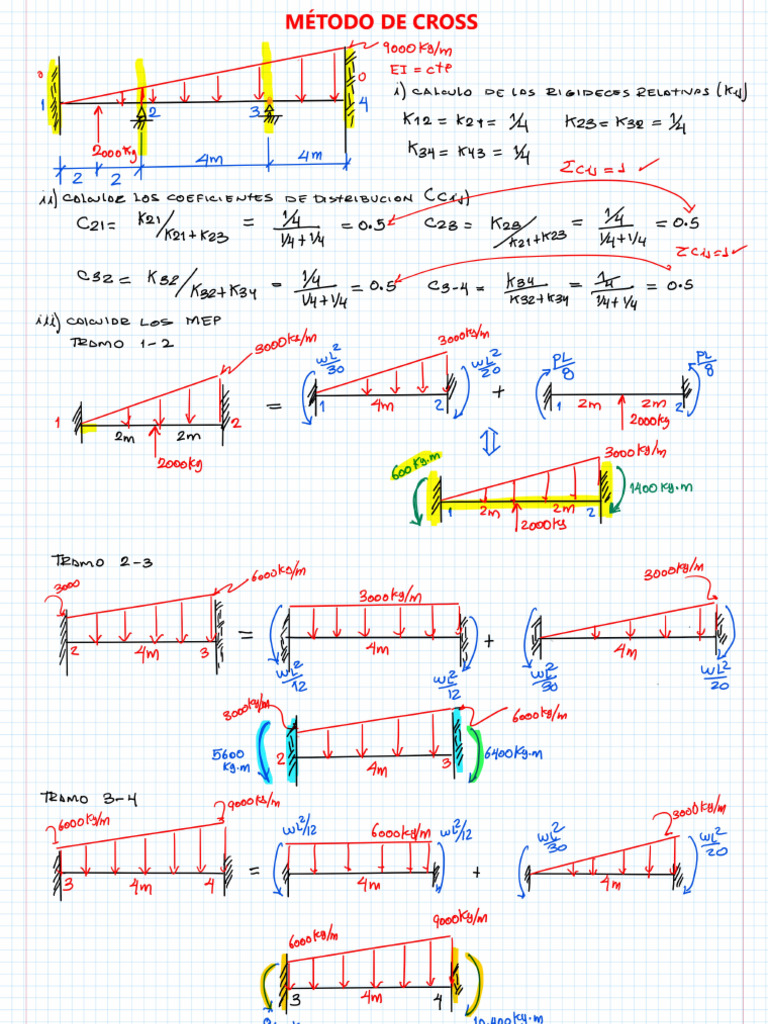 MÉTODO DE CROSS
9000 Kg/m
EI = cte
0
0
1
2
3
4
2000Kg
2
2
4m
4m
i) CALCULO DE LAS RIGIDECES RELATIVAS (Kij)
K12 = K21 = 1/4 K23 = K32 = 1/4
K34 = K43 = 1/4
ΣCij = 1 ✓
ii) CALCULAR LOS COEFICIENTES DE DISTRIBUCION (Cij)
C21 = K21/K21+K23 = 1/4 / 1/4+1/4 = 0.5 C23 = K23/K21+K23 = 1/4 / 1/4+1/4 = 0.5
ΣCij=1 ✓
C32 = K32/K32+K34 = 1/4 / 1/4+1/4 = 0.5 C3-4 = K34/K32+K34 = 1/4 / 1/4+1/4 = 0.5
iii) CALCULAR LOS MEP
TRAMO 1-2
3000Kg/m
1
2m
2m
2
2000Kg
=
wL²/30
3000Kg/m
wL²/20
1
4m
2
+
PL/8
PL/8
1
2m
2m
2
2000Kg
600 Kg.m
3000Kg/m
1400 Kg.m
1
2m
2m
2
2000Kg
TRAMO 2-3
3000
6000Kg/m
2
4m
3
=
3000Kg/m
4m
wL²/12
wL²/12
+
3000Kg/m
4m
wL²/30
wL²/20
3000Kg/m
6000Kg/m
5600 Kg.m
2
4m
3
6400Kg.m
TRAMO 3-4
6000Kg/m
9000Kg/m
3
4m
4
=
wL²/12
6000Kg/m
wL²/12
4m
+
wL²/30
3000Kg/m
wL²/20
4m
6000Kg/m
9000Kg/m
3
4m
4
10.400Kg.m